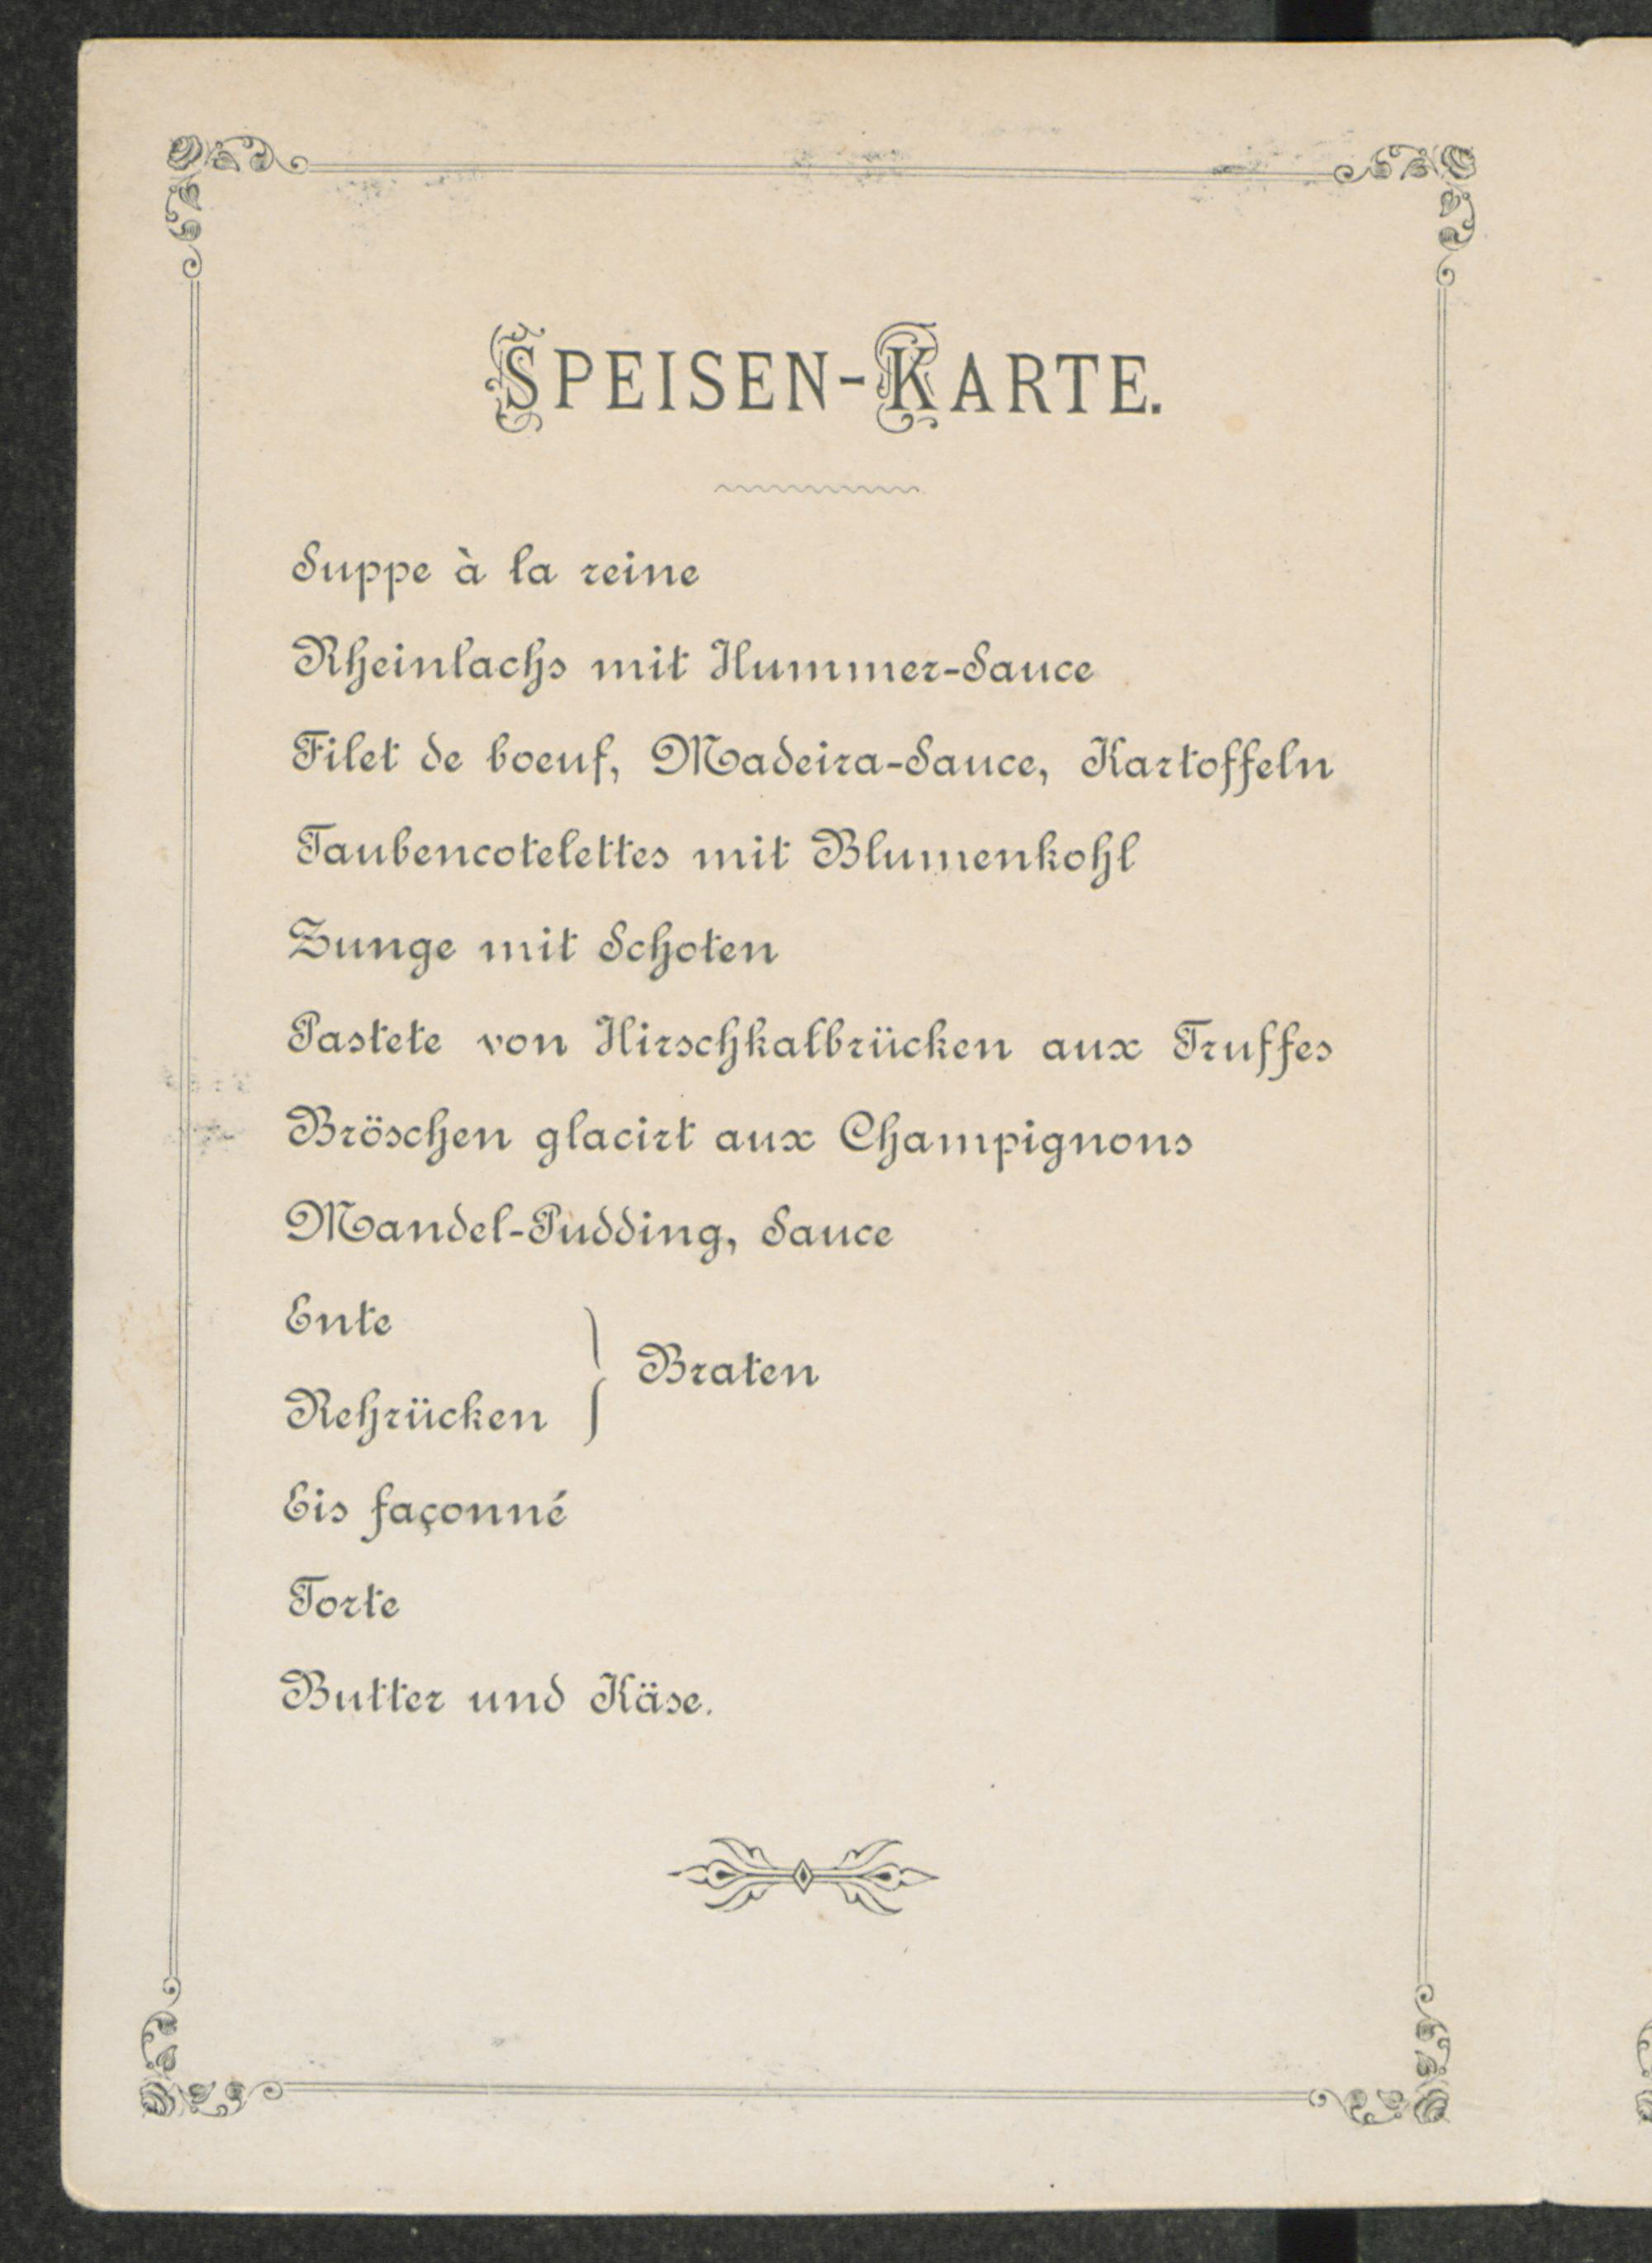 SPEISEN-KARTE.
Suppe à la reine
Rheinlachs mit Hummer-Sauce
Filet de boeuf, Madeira-Sauce, Kartoffeln
Taubencotelettes mit Blumenkohl
Zunge mit Schoten
Pastete von Hirschkalbrücken aux Truffes
Bröschen glacirt aux Champignons
Mandel-Pudding, Sauce
Ente
Rehrücken } Braten
Eis façonné
Torte
Butter und Käse.